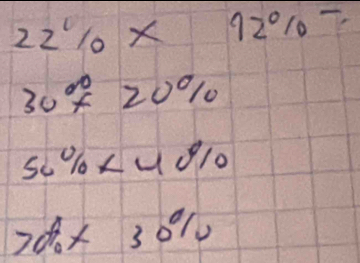 22% x 12% -
30% x 20%
50% x 40%
70% x 30%